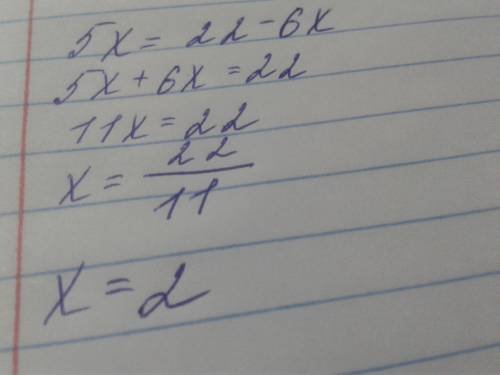 5x = 22 - 6x
5x + 6x = 22
11x = 22
x = 22/11
x = 2